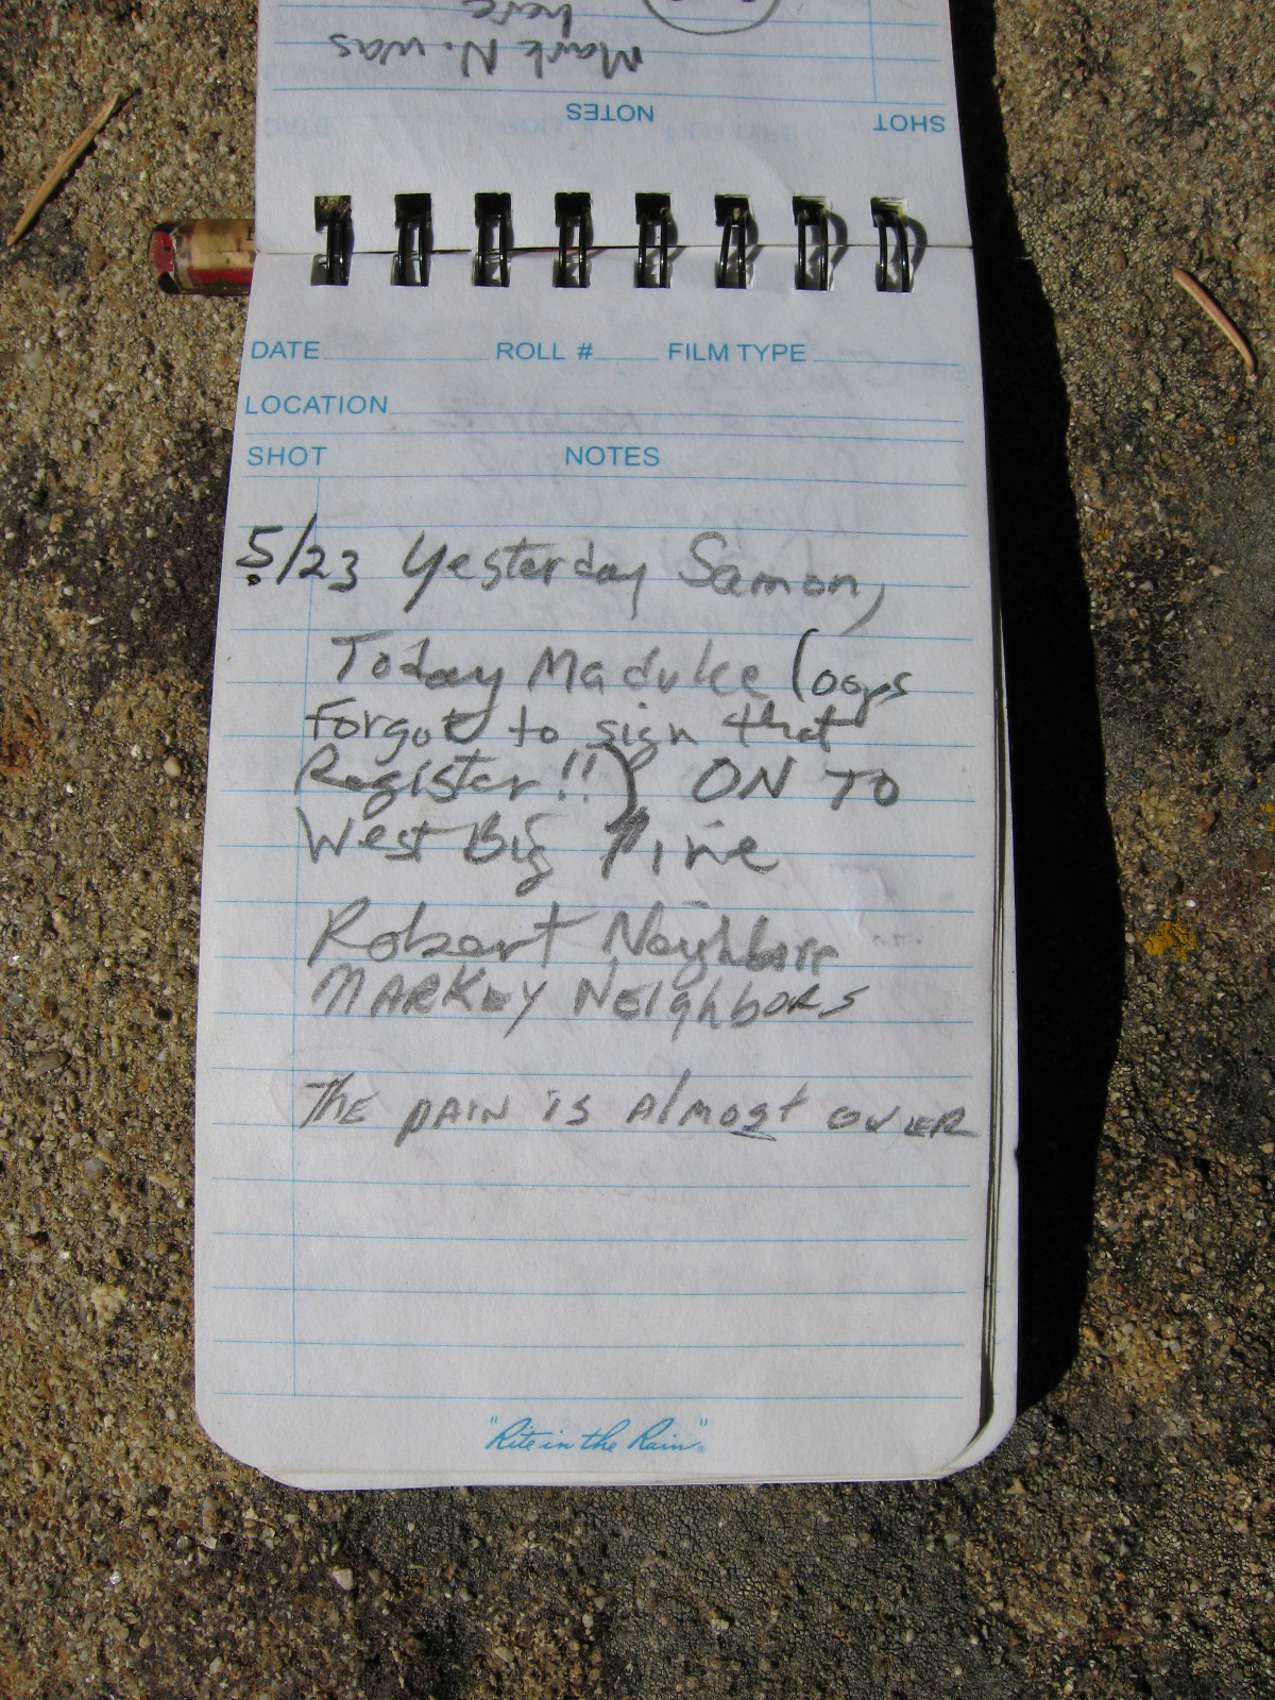 Mark N. was
here
SHOT NOTES
DATE ROLL # FILM TYPE
LOCATION
SHOT NOTES
5/23 Yesterday Samon,
Today Maduke (oops
Forgot to sign that
Register!!) ON TO
West Big Pine
Robert Neighbors
MARKEY NEIGHBORS
The PAIN is Almost OVER
"Rite in the Rain"